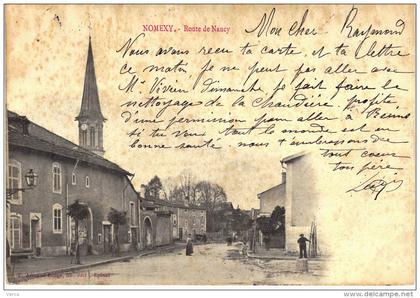 NOMEXY. - Route de Nancy
Mon cher Raymond
Nous avons reçu ta carte et ta lettre
ce matin je ne peut pas aller avec
Mr Vivien Dimanche, je fait faire le
nettoyage de la chaudière, profite
d'une permission pour aller à
si tu veux tout le monde est en
bonne santé nous t'embrassons de
tout coeur
ton père